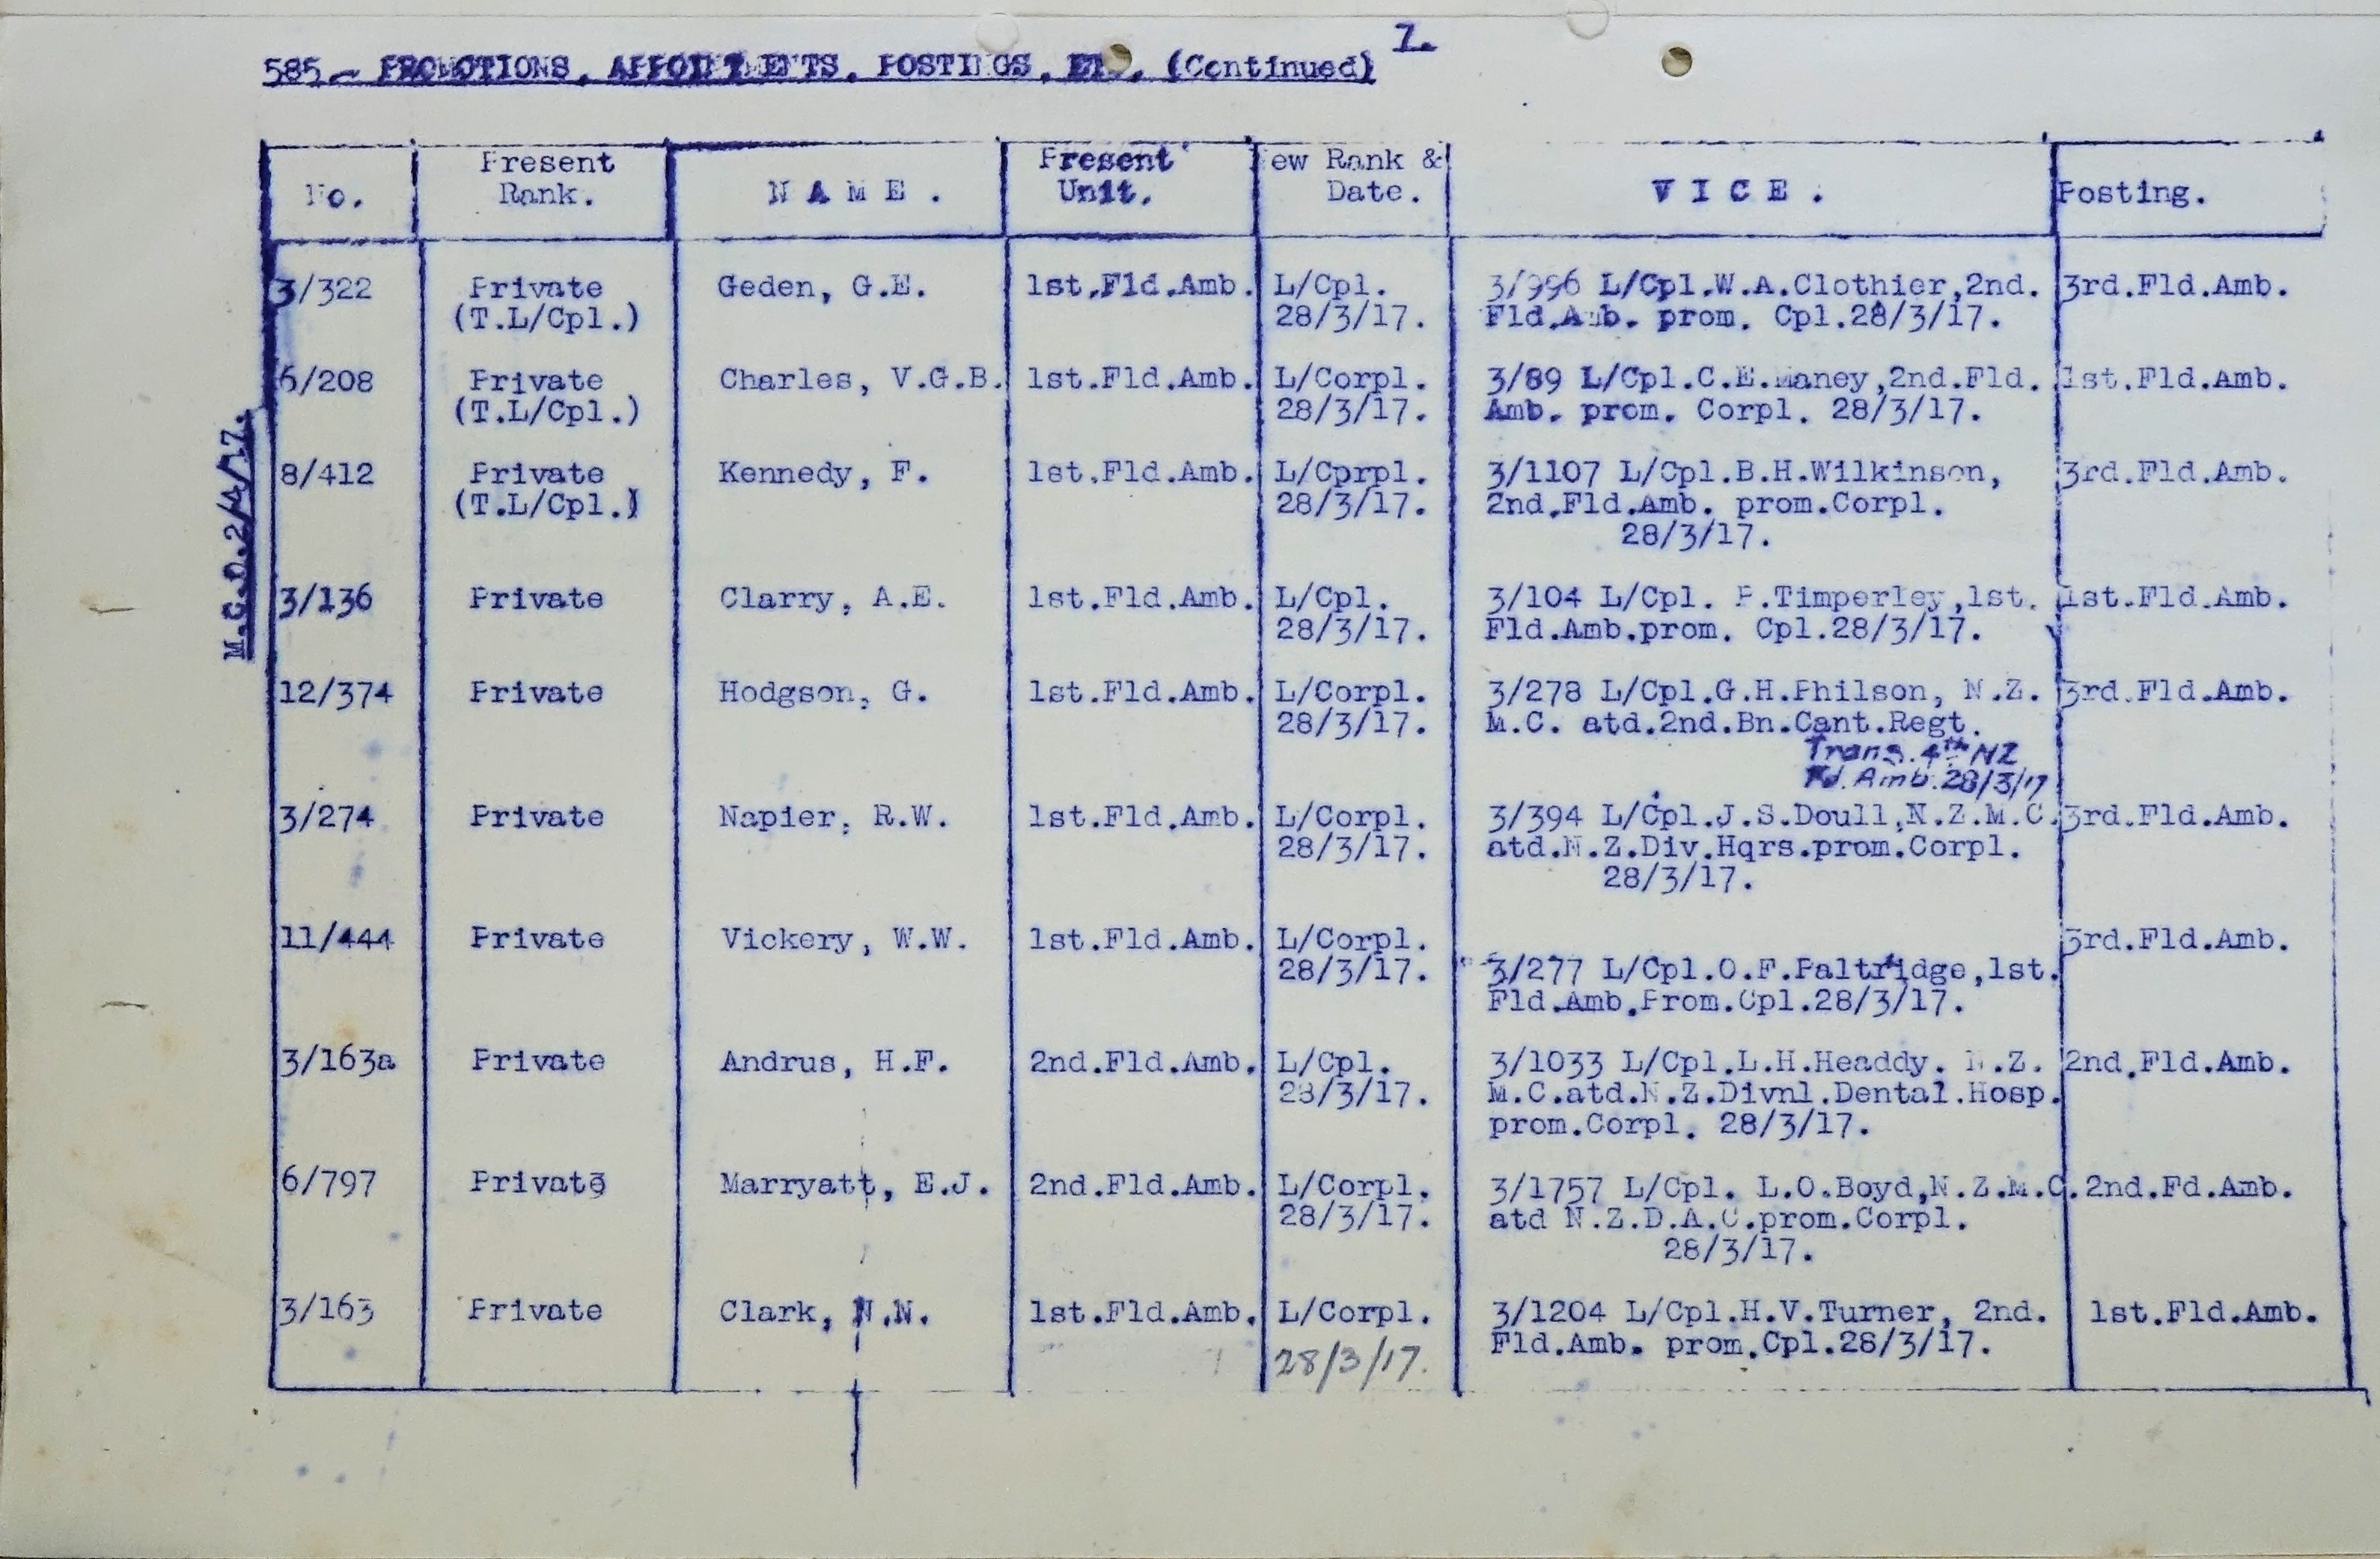 7.
585 - PROMOTIONS, APPOINTMENTS, POSTINGS, ETC. (Continued)
No. Present Rank. NAME. Present Unit. New Rank & Date. VICE. Posting.
M.C.O.2/4/17.
3/322 Private Geden, G.E. 1st.Fld.Amb. L/Cpl. 3/996 L/Cpl.W.A.Clothier,2nd. 3rd.Fld.Amb.
(T.L/Cpl.) 28/3/17. Fld.Amb. prom. Cpl.28/3/17.
6/208 Private Charles, V.G.B. 1st.Fld.Amb. L/Corpl. 3/89 L/Cpl.C.E.Maney,2nd.Fld. 1st.Fld.Amb.
(T.L/Cpl.) 28/3/17. Amb. prom. Corpl. 28/3/17.
8/412 Private Kennedy, F. 1st.Fld.Amb. L/Cprpl. 3/1107 L/Cpl.B.H.Wilkinson, 3rd.Fld.Amb.
(T.L/Cpl.) 28/3/17. 2nd.Fld.Amb. prom.Corpl.
28/3/17.
3/136 Private Clarry, A.E. 1st.Fld.Amb. L/Cpl. 3/104 L/Cpl. P.Timperley,1st. 1st.Fld.Amb.
28/3/17. Fld.Amb.prom. Cpl.28/3/17.
12/374 Private Hodgson, G. 1st.Fld.Amb. L/Corpl. 3/278 L/Cpl.G.H.Philson, N.Z. 3rd.Fld.Amb.
28/3/17. M.C. atd.2nd.Bn.Cant.Regt.
Trans. 4th NZ
Fd. Amb. 28/3/17
3/274 Private Napier, R.W. 1st.Fld.Amb. L/Corpl. 3/394 L/Cpl.J.S.Doull,N.Z.M.C. 3rd.Fld.Amb.
28/3/17. atd.N.Z.Div.Hqrs.prom.Corpl.
28/3/17.
11/444 Private Vickery, W.W. 1st.Fld.Amb. L/Corpl. 3rd.Fld.Amb.
28/3/17. 3/277 L/Cpl.O.F.Paltridge,1st.
Fld.Amb.Prom.Cpl.28/3/17.
3/163a Private Andrus, H.F. 2nd.Fld.Amb. L/Cpl. 3/1033 L/Cpl.L.H.Headdy. N.Z. 2nd.Fld.Amb.
28/3/17. M.C.atd.N.Z.Divnl.Dental.Hosp.
prom.Corpl. 28/3/17.
6/797 Private Marryatt, E.J. 2nd.Fld.Amb. L/Corpl. 3/1757 L/Cpl. L.O.Boyd,N.Z.M.C. 2nd.Fd.Amb.
28/3/17. atd N.Z.D.A.C.prom.Corpl.
28/3/17.
3/163 Private Clark, N.N. 1st.Fld.Amb. L/Corpl. 3/1204 L/Cpl.H.V.Turner, 2nd. 1st.Fld.Amb.
28/3/17. Fld.Amb. prom.Cpl.28/3/17.